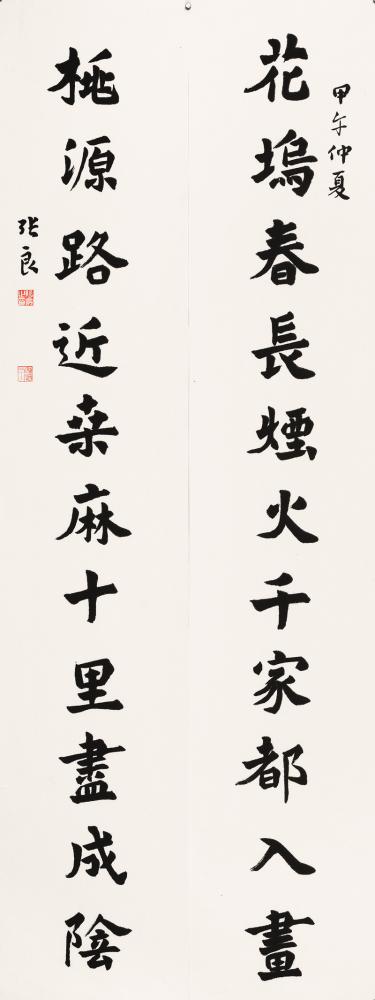 甲午仲夏
花塢春長煙火千家都入畫
桃源路近桑麻十里盡成陰
张良